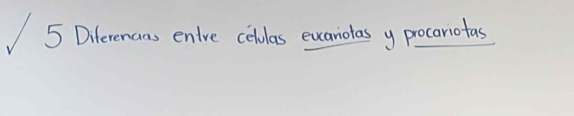 ✓ 5 Diferencias entre células eucariotas y procariotas